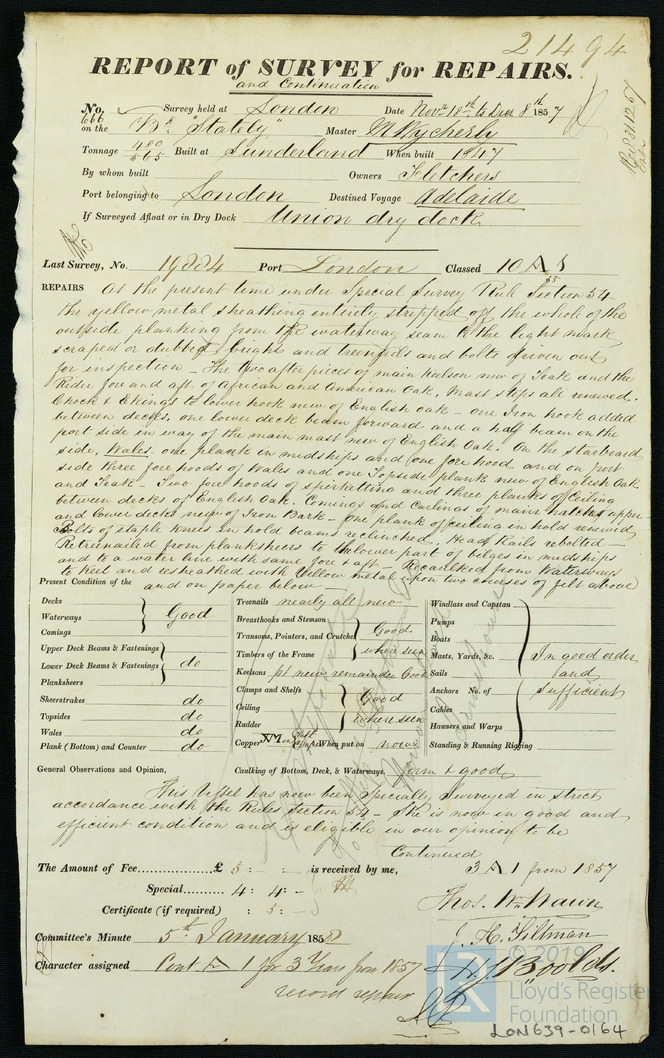 21494
REPORT of SURVEY for REPAIRS.
and Continuation
No. 666 Survey held at London Date Novr 18th to Decr 8th 1857
on the Bk "Stately" Master McWycherly
Tonnage 480/565 Built at Sunderland When built 1847
By whom built Owners Fletchers
Port belonging to London Destined Voyage Adelaide
If Surveyed Afloat or in Dry Dock Union dry dock
Last Survey, No. 19884 Port London Classed 10 A 1
REPAIRS At the present time under Special Survey Rule Section 54 55
the yellow metal sheathing entirely stripped off the whole of the
outside planking from the waterway seam to the light mark
scraped or dubbed bright and treenails and bolts driven out
for inspection — The two after pieces of main keelson new of Teak and the
Rider fore and aft of African and American Oak, Mast steps all renewed.
Chock & Ekings to lower hook new of English oak — one Iron hook added
between decks, one lower deck beam forward and a half beam on the
port side in way of the main mast new of English Oak. On the starboard
side, Wales, one plank in midships and one fore hood and on port
side three fore hoods of Wales and one Topside plank new of English Oak
and Teak — Two fore hoods of spirketting and three planks of Ceiling
between decks of English Oak. Comings and Carlings of main hatches upper
and lower decks new of Iron Bark — One plank of ceiling in hold renewed
Bolts of staple knees in hold beams reclinched, Head Rails rebolted —
Retreenailed from planksheers to lower part of bilges in midships
and to a water line with same fore & aft — Recaulked from Waterways
to keel and resheathed with Yellow metal upon two courses of felt above
and on paper below —
Present Condition of the
Decks
Waterways Good
Comings
Upper Deck Beams & Fastenings
Lower Deck Beams & Fastenings do
Planksheers
Sheerstrakes do
Topsides do
Wales do
Plank (Bottom) and Counter do
Treenails nearly all new
Breasthooks and Stemson
Transoms, Pointers, and Crutches Good
Timbers of the Frame where seen
Keelsons pt new remainder Good
Clamps and Shelfs
Ceiling Good
Rudder where seen
Copper YM on Felt When put on now
Windlass and Capstan
Pumps
Boats
Masts, Yards, &c. In good order
Sails and
Anchors No. of sufficient
Cables
Hawsers and Warps
Standing & Running Rigging
General Observations and Opinion, Caulking of Bottom, Deck, & Waterways, Firm & good
This Vessel has now been Specially Surveyed in strict
accordance with the Rules Section 54 — She is now in good and
efficient condition and is eligible in our opinion to be
Continued
3 A 1 from 1857
The Amount of Fee £ 5 : - : - is received by me,
Special 4 : 4 : -
Certificate (if required) : 5 : -
Thos. Wm Nawn
J. H. Tiltman
Committee's Minute 5th January 1858
Character assigned Cont A 1 for 3 Years from 1857
record repairs
© 2019
Lloyd's Register
Foundation
LON639-0164